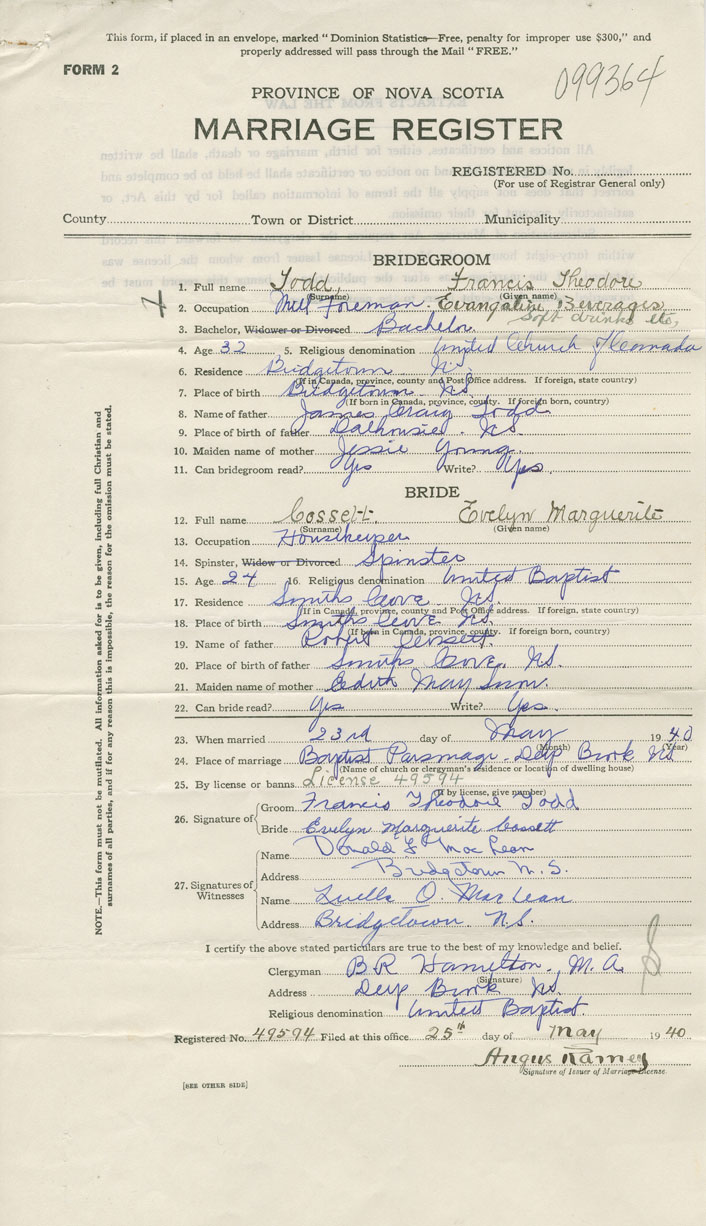 This form, if placed in an envelope, marked "Dominion Statistics—Free, penalty for improper use $300," and
properly addressed will pass through the Mail "FREE."
FORM 2
099364
PROVINCE OF NOVA SCOTIA
MARRIAGE REGISTER
REGISTERED No.
(For use of Registrar General only)
County Town or District Municipality
BRIDEGROOM
1. Full name Todd, Francis Theodore
(Surname) (Given name)
2. Occupation Mill Foreman. Evangeline Beverages
Soft drinks etc,
3. Bachelor, Widower or Divorced Bachelor
4. Age 32 5. Religious denomination United Church of Canada
6. Residence Bridgetown N.S.
(If in Canada, province, county and Post Office address. If foreign, state country)
7. Place of birth Bridgetown N.S.
(If born in Canada, province, county. If foreign born, country)
8. Name of father James Craig Todd
9. Place of birth of father Dalhousie. N.S.
10. Maiden name of mother Jessie Young.
11. Can bridegroom read? Yes Write? Yes
BRIDE
12. Full name Cossett. Evelyn Marguerite
(Surname) (Given name)
13. Occupation Housekeeper
14. Spinster, Widow or Divorced Spinster
15. Age 24 16. Religious denomination United Baptist
17. Residence Smiths Cove N.S.
(If in Canada, province, county and Post Office address. If foreign, state country)
18. Place of birth Smiths Cove N.S.
(If born in Canada, province, county. If foreign born, country)
19. Name of father Robert Cossett.
20. Place of birth of father Smiths Cove, N.S.
21. Maiden name of mother Edith May Snow.
22. Can bride read? Yes Write? Yes.
23. When married 23rd day of May 1940
(Month) (Year)
24. Place of marriage Baptist Parsonage. Deep Brook N.S.
(Name of church or clergyman's residence or location of dwelling house)
25. By license or banns License 49594
(If by license, give number)
26. Signature of
Groom Francis Theodore Todd
Bride Evelyn Marguerite Cossett
27. Signatures of Witnesses
Name Donald F. MacLean
Address Bridgetown N.S.
Name Luella O. MacLean
Address Bridgetown. N.S.
I certify the above stated particulars are true to the best of my knowledge and belief.
Clergyman B R Hamelton., M.A.
(Signature)
Address Deep Brook N.S.
Religious denomination United Baptist.
Registered No. 49594 Filed at this office 25th day of May 1940
Angus Ramey
Signature of Issuer of Marriage License.
[SEE OTHER SIDE]
NOTE.—This form must not be mutilated. All information asked for is to be given, including full Christian and
surnames of all parties, and if for any reason this is impossible, the reason for the omission must be stated.